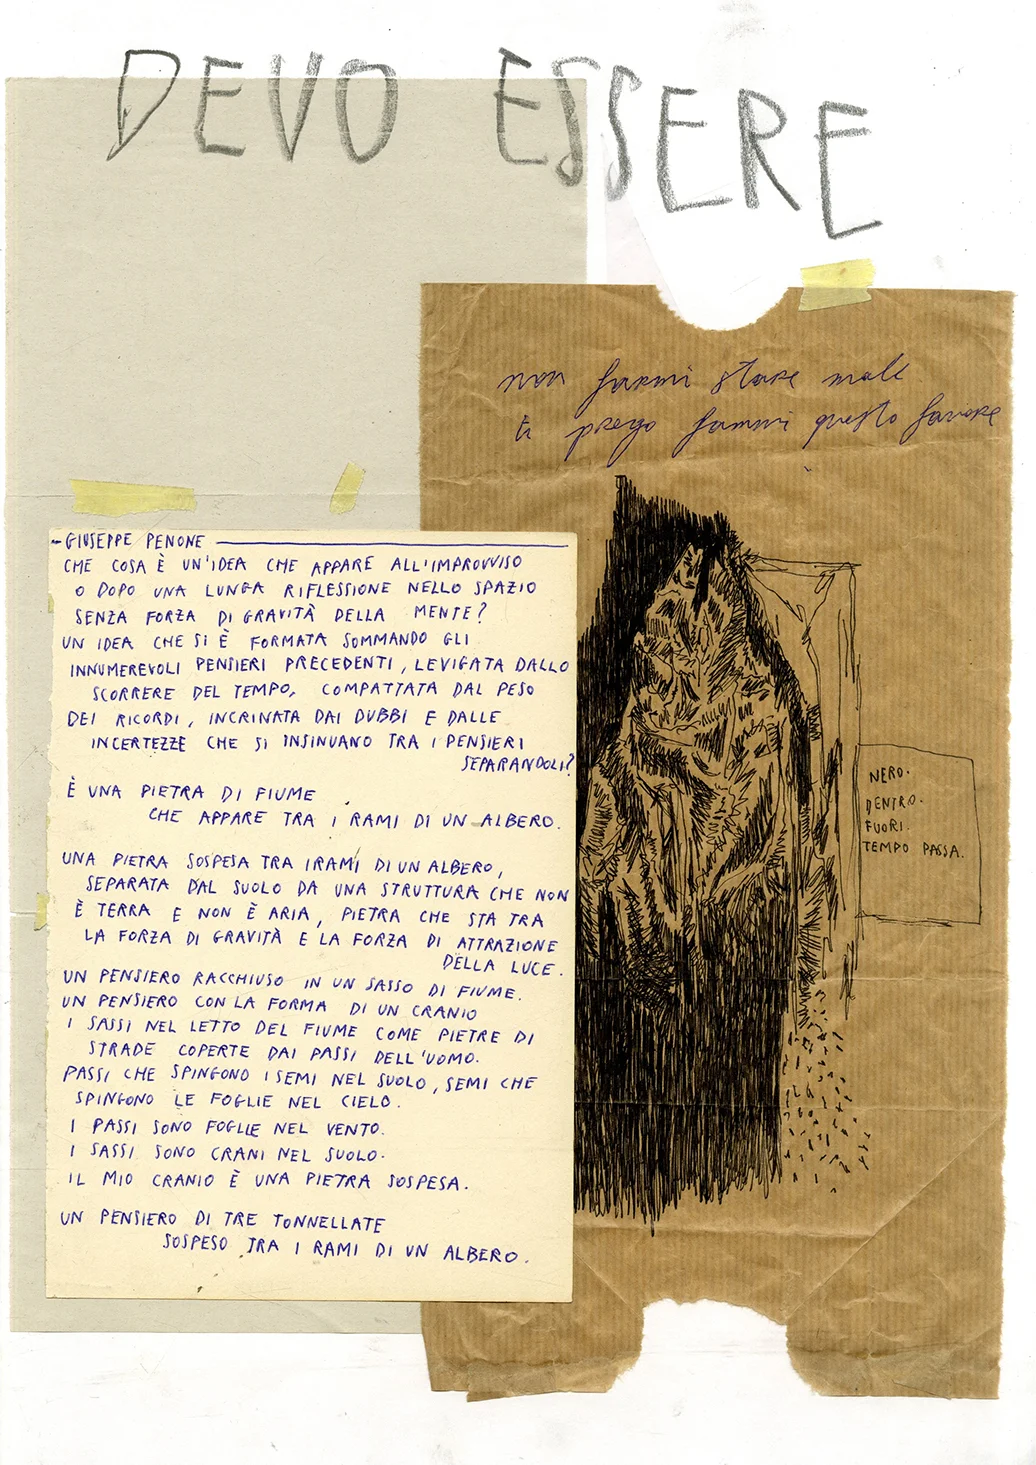 DEVO ESSERE
non farmi stare male
ti prego fammi questo favore
- GIUSEPPE PENONE
CHE COSA È UN'IDEA CHE APPARE ALL'IMPROVVISO
O DOPO UNA LUNGA RIFLESSIONE NELLO SPAZIO
SENZA FORZA DI GRAVITÀ DELLA MENTE?
UN IDEA CHE SI È FORMATA SOMMANDO GLI
INNUMEREVOLI PENSIERI PRECEDENTI, LEVIGATA DALLO
SCORRERE DEL TEMPO, COMPATTATA DAL PESO
DEI RICORDI, INCRINATA DAI DUBBI E DALLE
INCERTEZZE CHE SI INSINUANO TRA I PENSIERI
SEPARANDOLI?
È UNA PIETRA DI FIUME
CHE APPARE TRA I RAMI DI UN ALBERO.
UNA PIETRA SOSPESA TRA I RAMI DI UN ALBERO,
SEPARATA DAL SUOLO DA UNA STRUTTURA CHE NON
È TERRA E NON È ARIA, PIETRA CHE STA TRA
LA FORZA DI GRAVITÀ E LA FORZA DI ATTRAZIONE
DELLA LUCE.
UN PENSIERO RACCHIUSO IN UN SASSO DI FIUME.
UN PENSIERO CON LA FORMA DI UN CRANIO
I SASSI NEL LETTO DEL FIUME COME PIETRE DI
STRADE COPERTE DAI PASSI DELL'UOMO.
PASSI CHE SPINGONO I SEMI NEL SUOLO, SEMI CHE
SPINGONO LE FOGLIE NEL CIELO.
I PASSI SONO FOGLIE NEL VENTO.
I SASSI SONO CRANI NEL SUOLO.
IL MIO CRANIO È UNA PIETRA SOSPESA.
UN PENSIERO DI TRE TONNELLATE
SOSPESO TRA I RAMI DI UN ALBERO.
NERO.
DENTRO.
FUORI.
TEMPO PASSA.